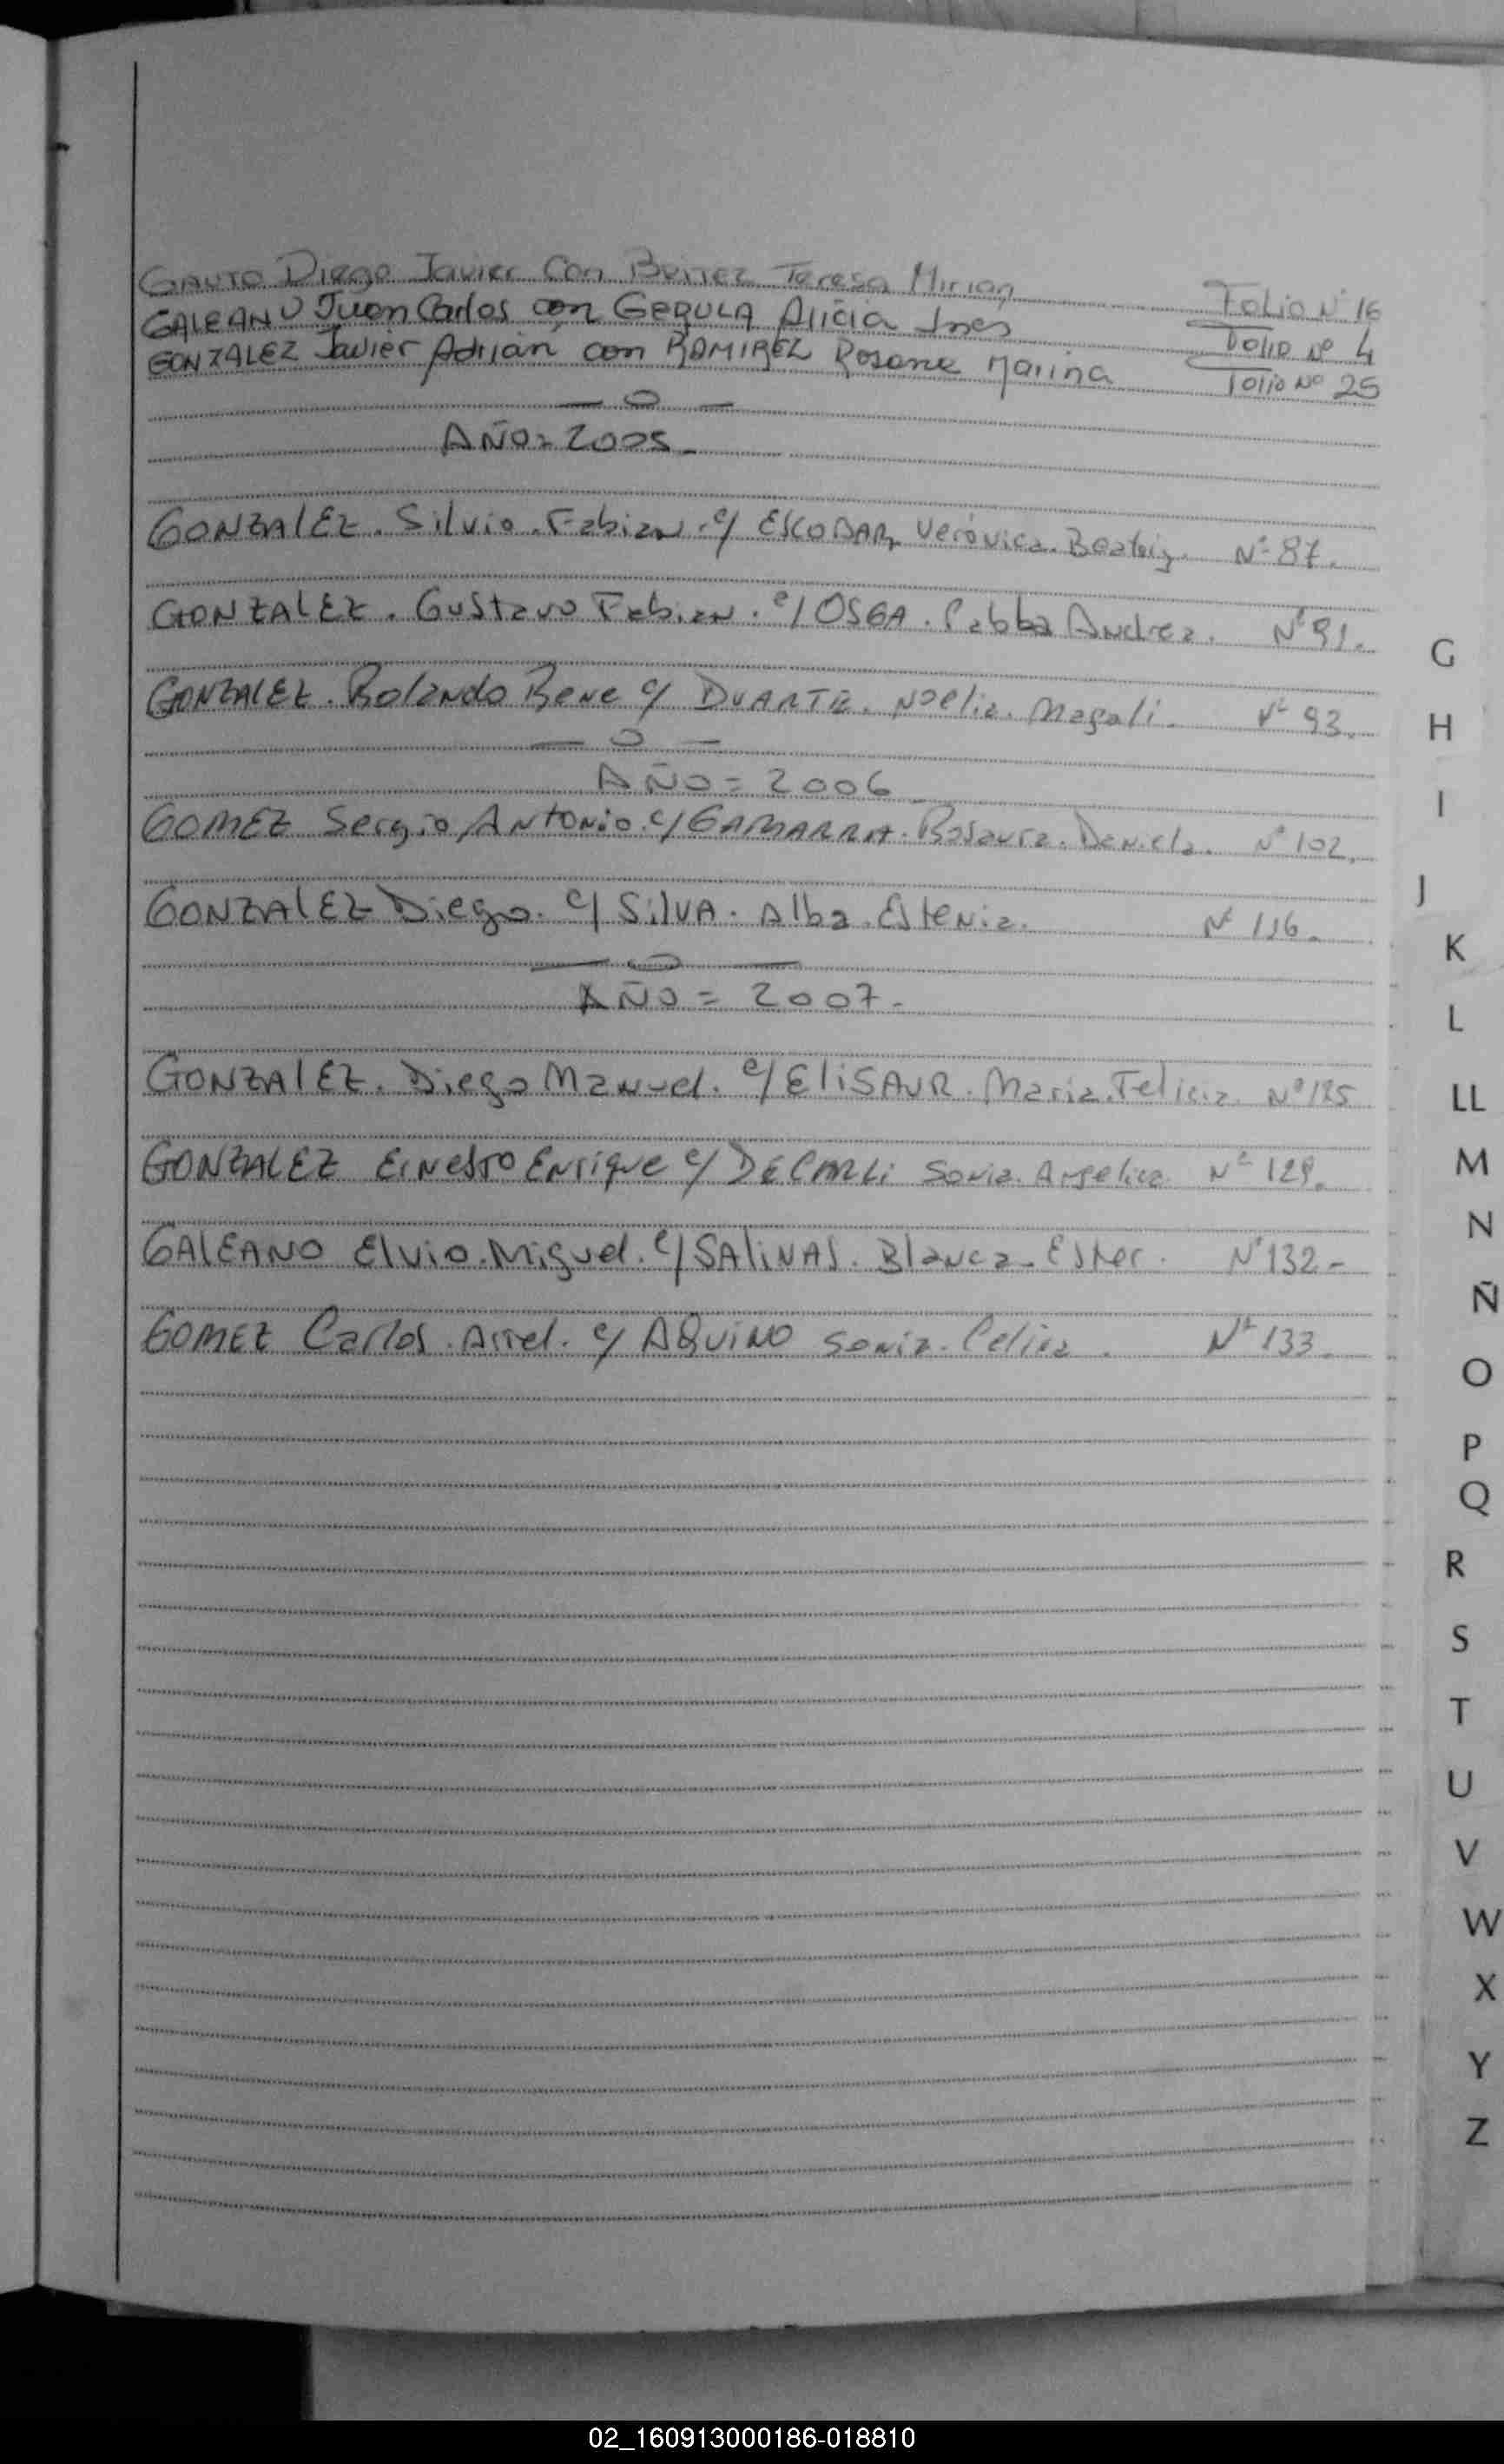 GAUTO Diego Javier Con Benitez Teresa Mirian Folio Nº 16
GALEANO Juan Carlos con GEQULA Alicia Ines Folio Nº 4
GONZALEZ Javier Adrián con RAMIREZ Rosana Marina Folio Nº 25
— o —
AÑO= 2005-
GONZALEZ. Silvio. Fabian. c/ ESCOBAR, Verónica. Beatriz. Nº 87.
GONZALEZ. Gustavo Fabian. c/ OSGA. Andrea. Nº 91.
GONZALEZ. Rolando Rene c/ DUARTE. Noelia. Magali. Nº 93.
— o —
AÑO= 2006
GOMEZ Sergio Antonio. c/ GAMARRA. Rosaura. Daniela. Nº 102.
GONZALEZ Diego. c/ SILVA. Alba. Estenia. Nº 116.
— o —
AÑO= 2007-
GONZALEZ. Diego Manuel. c/ ELISAUR. Maria. Felicia. Nº 125
GONZALEZ Ernesto Enrique c/ DECARLI Sonia. Argelica. Nº 129.
GALEANO Elvio. Miguel. c/ SALINAS. Blanca. Ester. Nº 132-
GOMEZ Carlos. Ariel. c/ AQUINO Sonia. Celina. Nº 133.
G
H
I
J
K
L
LL
M
N
Ñ
O
P
Q
R
S
T
U
V
W
X
Y
Z
02_160913000186-018810